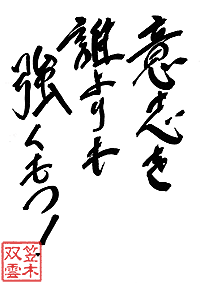 意志を
誰よりも
強くもつ!
笠木
双雲